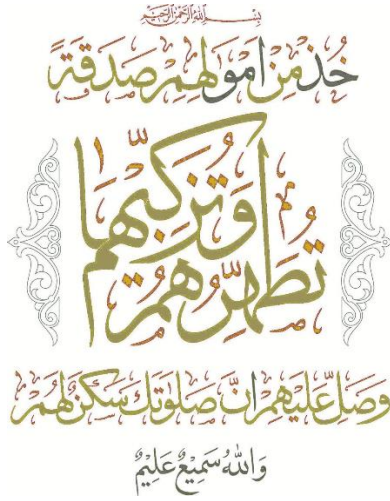 بِسْمِ اللهِ الرَّحْمٰنِ الرَّحِيْمِ
خُذْ مِنْ اَمْوَالِهِمْ صَدَقَةً
تُطَهِّرُهُمْ وَتُزَكِّيْهِمْ بِهَا
وَصَلِّ عَلَيْهِمْ اِنَّ صَلٰوتَكَ سَكَنٌ لَهُمْ
وَاللهُ سَمِيْعٌ عَلِيْمٌ